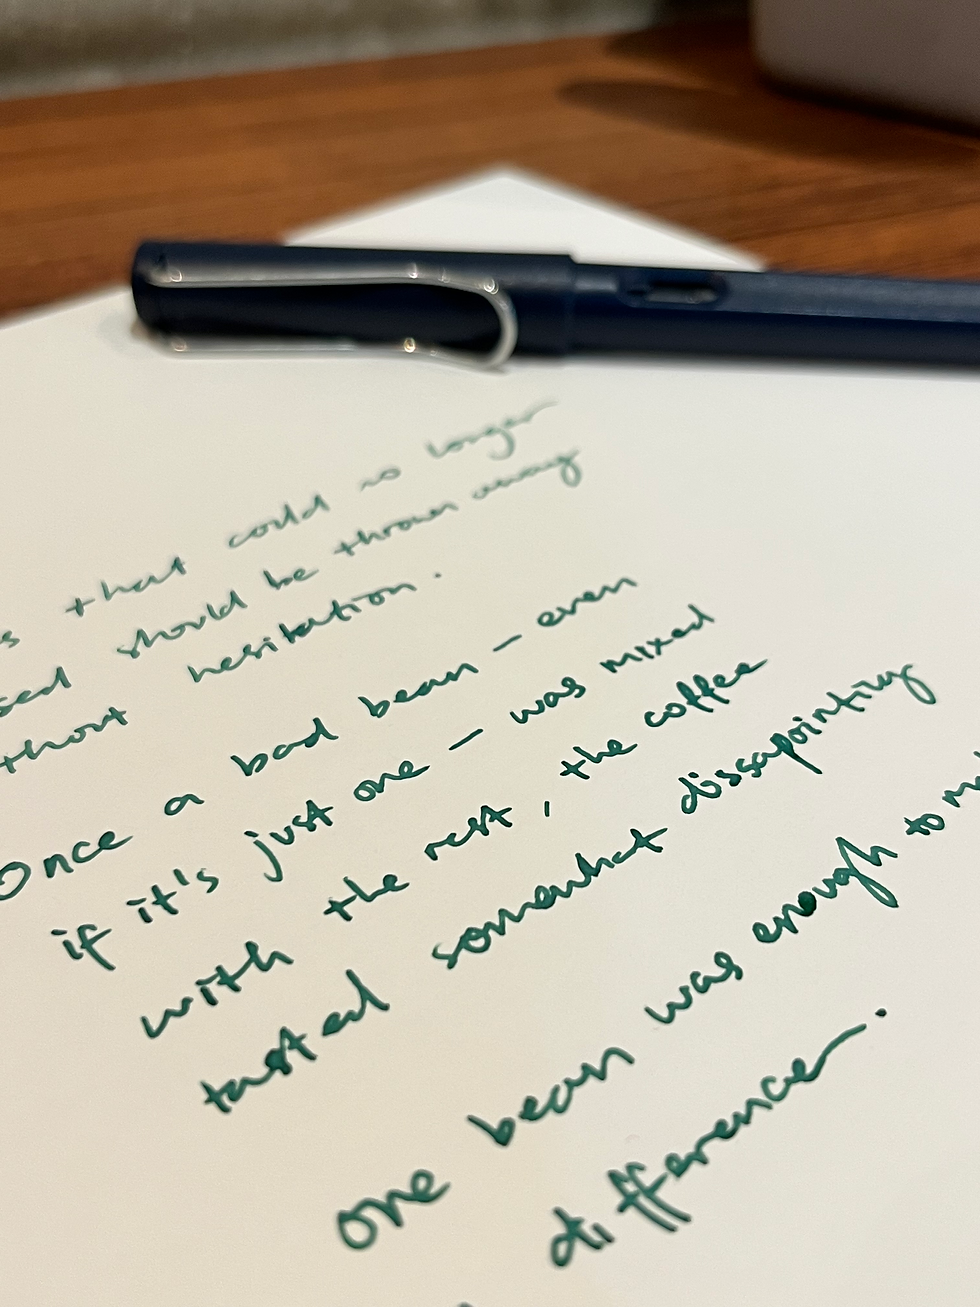 that could no longer
should be thrown away
hesitation.
Once a bad bean — even
if it's just one — was mixed
with the rest, the coffee
tasted somewhat dissapointing
one bean was enough to
difference.